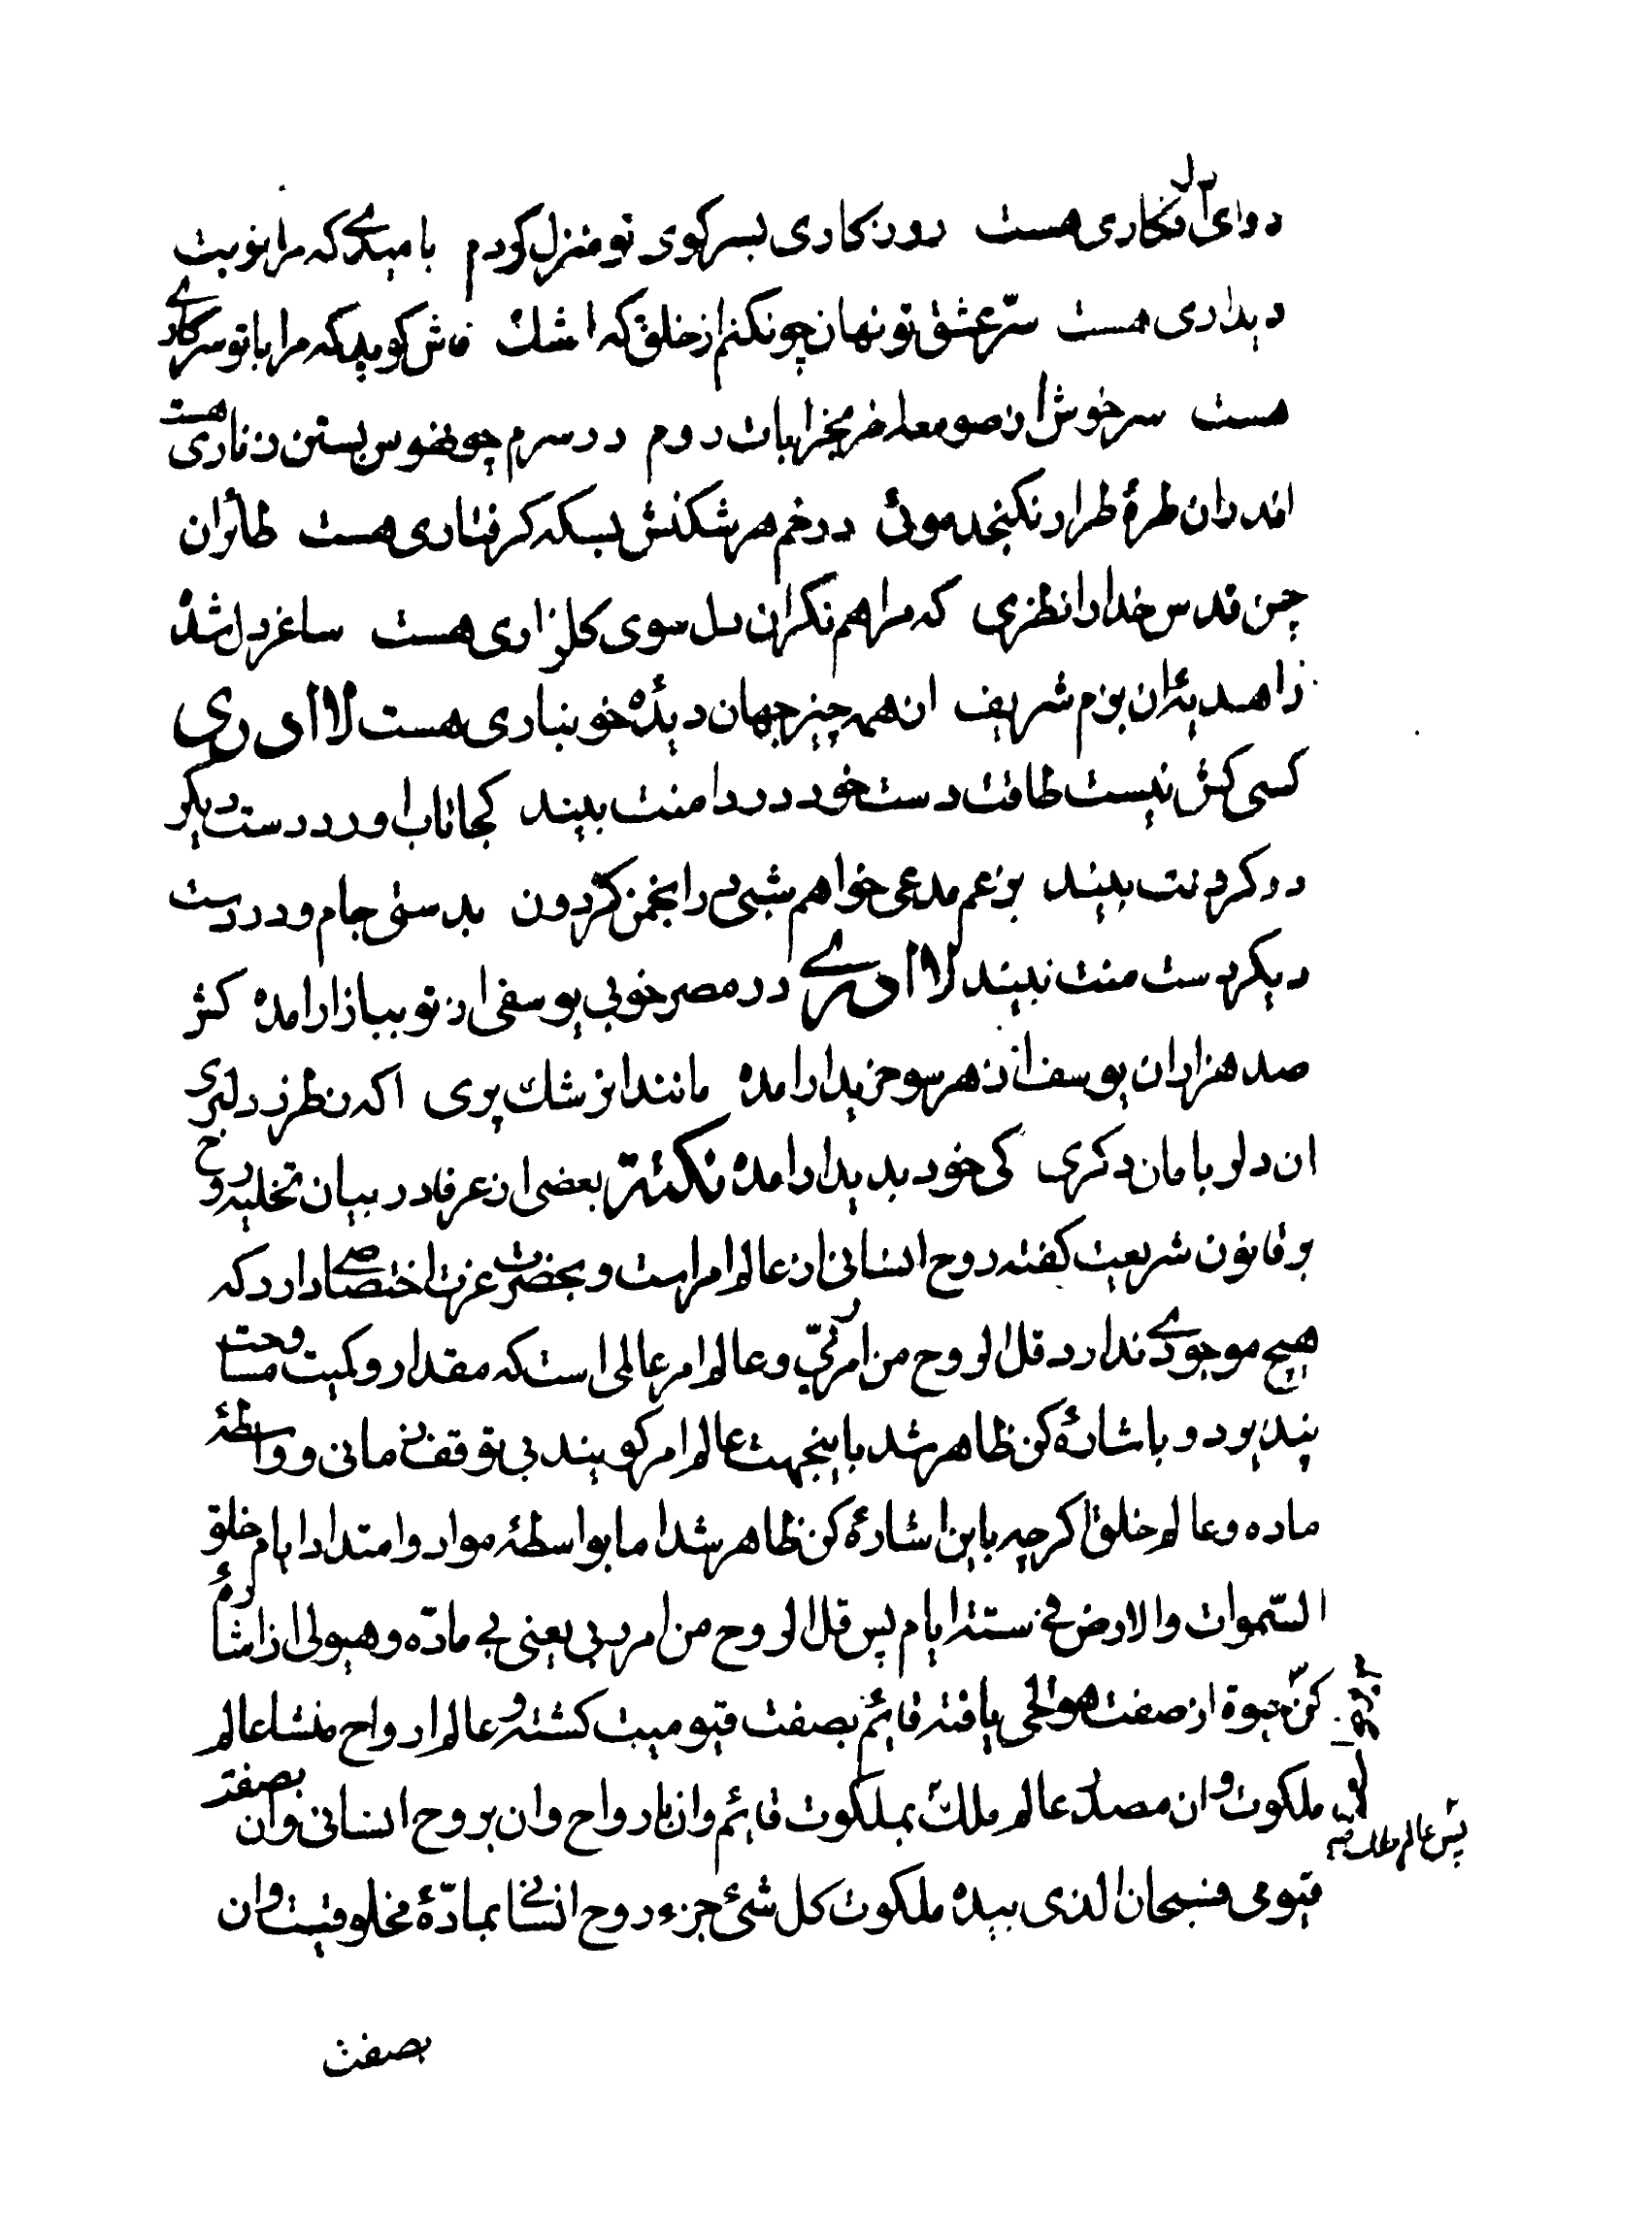 دوای دل فکاری هست روزکاری بسر کوی تو منزل کردم بامیدی که مرا نوبت
دیداری هست سرّ عشق تو نهان چونکنم از خلق که اشک فاش کوید که مرا با تو سرکاری
هست سرخوش از صومعه بخرابات روم در سرم چو هوس بستن زناری هست
اندران طرهٔ طرار نکنجد موئی در خم هر شکنش بسکه کرفتاری هست طائران
چمن قدس خدا را نظری که مرا هم نکران دل سوی کلزاری هست ساغر دل شده
زاهد ازان بزم شریف از همه چیز جهان دیدهٔ خونباری هست لا ادری
کسی کش نیست طاقت دست خود در دامنت بیند کجا تاب اورد دست دیکر
در کردنت بیند بزعم مدعی خواهم شبی در انجمن کردون بدستی جام و در دست
دیکر دست منت بیند لا ادری در مصر خوبی یوسفی از نو ببازار امده کش
صد هزاران یوسف از هر سو خریدار امده مانند از شک پری اکه ز طرز دلبری
ان دلربا مان دکری کی خود بدیدار امده نکتة بعضی از عرفا در بیان تخلیه روح
بر قانون شریعت کفته روح انسانی از عالم امر است و بحضرت عزت اختصاصی دارد که
هیچ موجودی ندارد قل الروح من امر ربّی و عالم امر عالمی است که مقدار و کمیت و مساحت
پذیر بود و باشارهٔ کن ظاهر شد باینجهت عالم امر کویند بی توقف زمانی و واسطهٔ
ماده و عالم خلق اکرچه باین اشارهٔ کن ظاهر شد اما بواسطهٔ مواد و امتداد ایام خلق
السّموات والارض فی ستة ایام پس قل الروح من امر ربی یعنی بی مادّه و هیولی از اشارهٔ
کن حیوة از صفت هو الحی یافته قائم بصفت قیومیت کشته و عالم ارواح منشا عالم
ملکوت و ان مصدر عالم ملک بملکوت قائم وان بارواح وان بروح انسانی وان بصفت
پس عالم ملک
قیومی فسبحان الذی بیده ملکوت کل شئ جزء روح انسانی بمادّهٔ مخلوقیت وان
بصفت